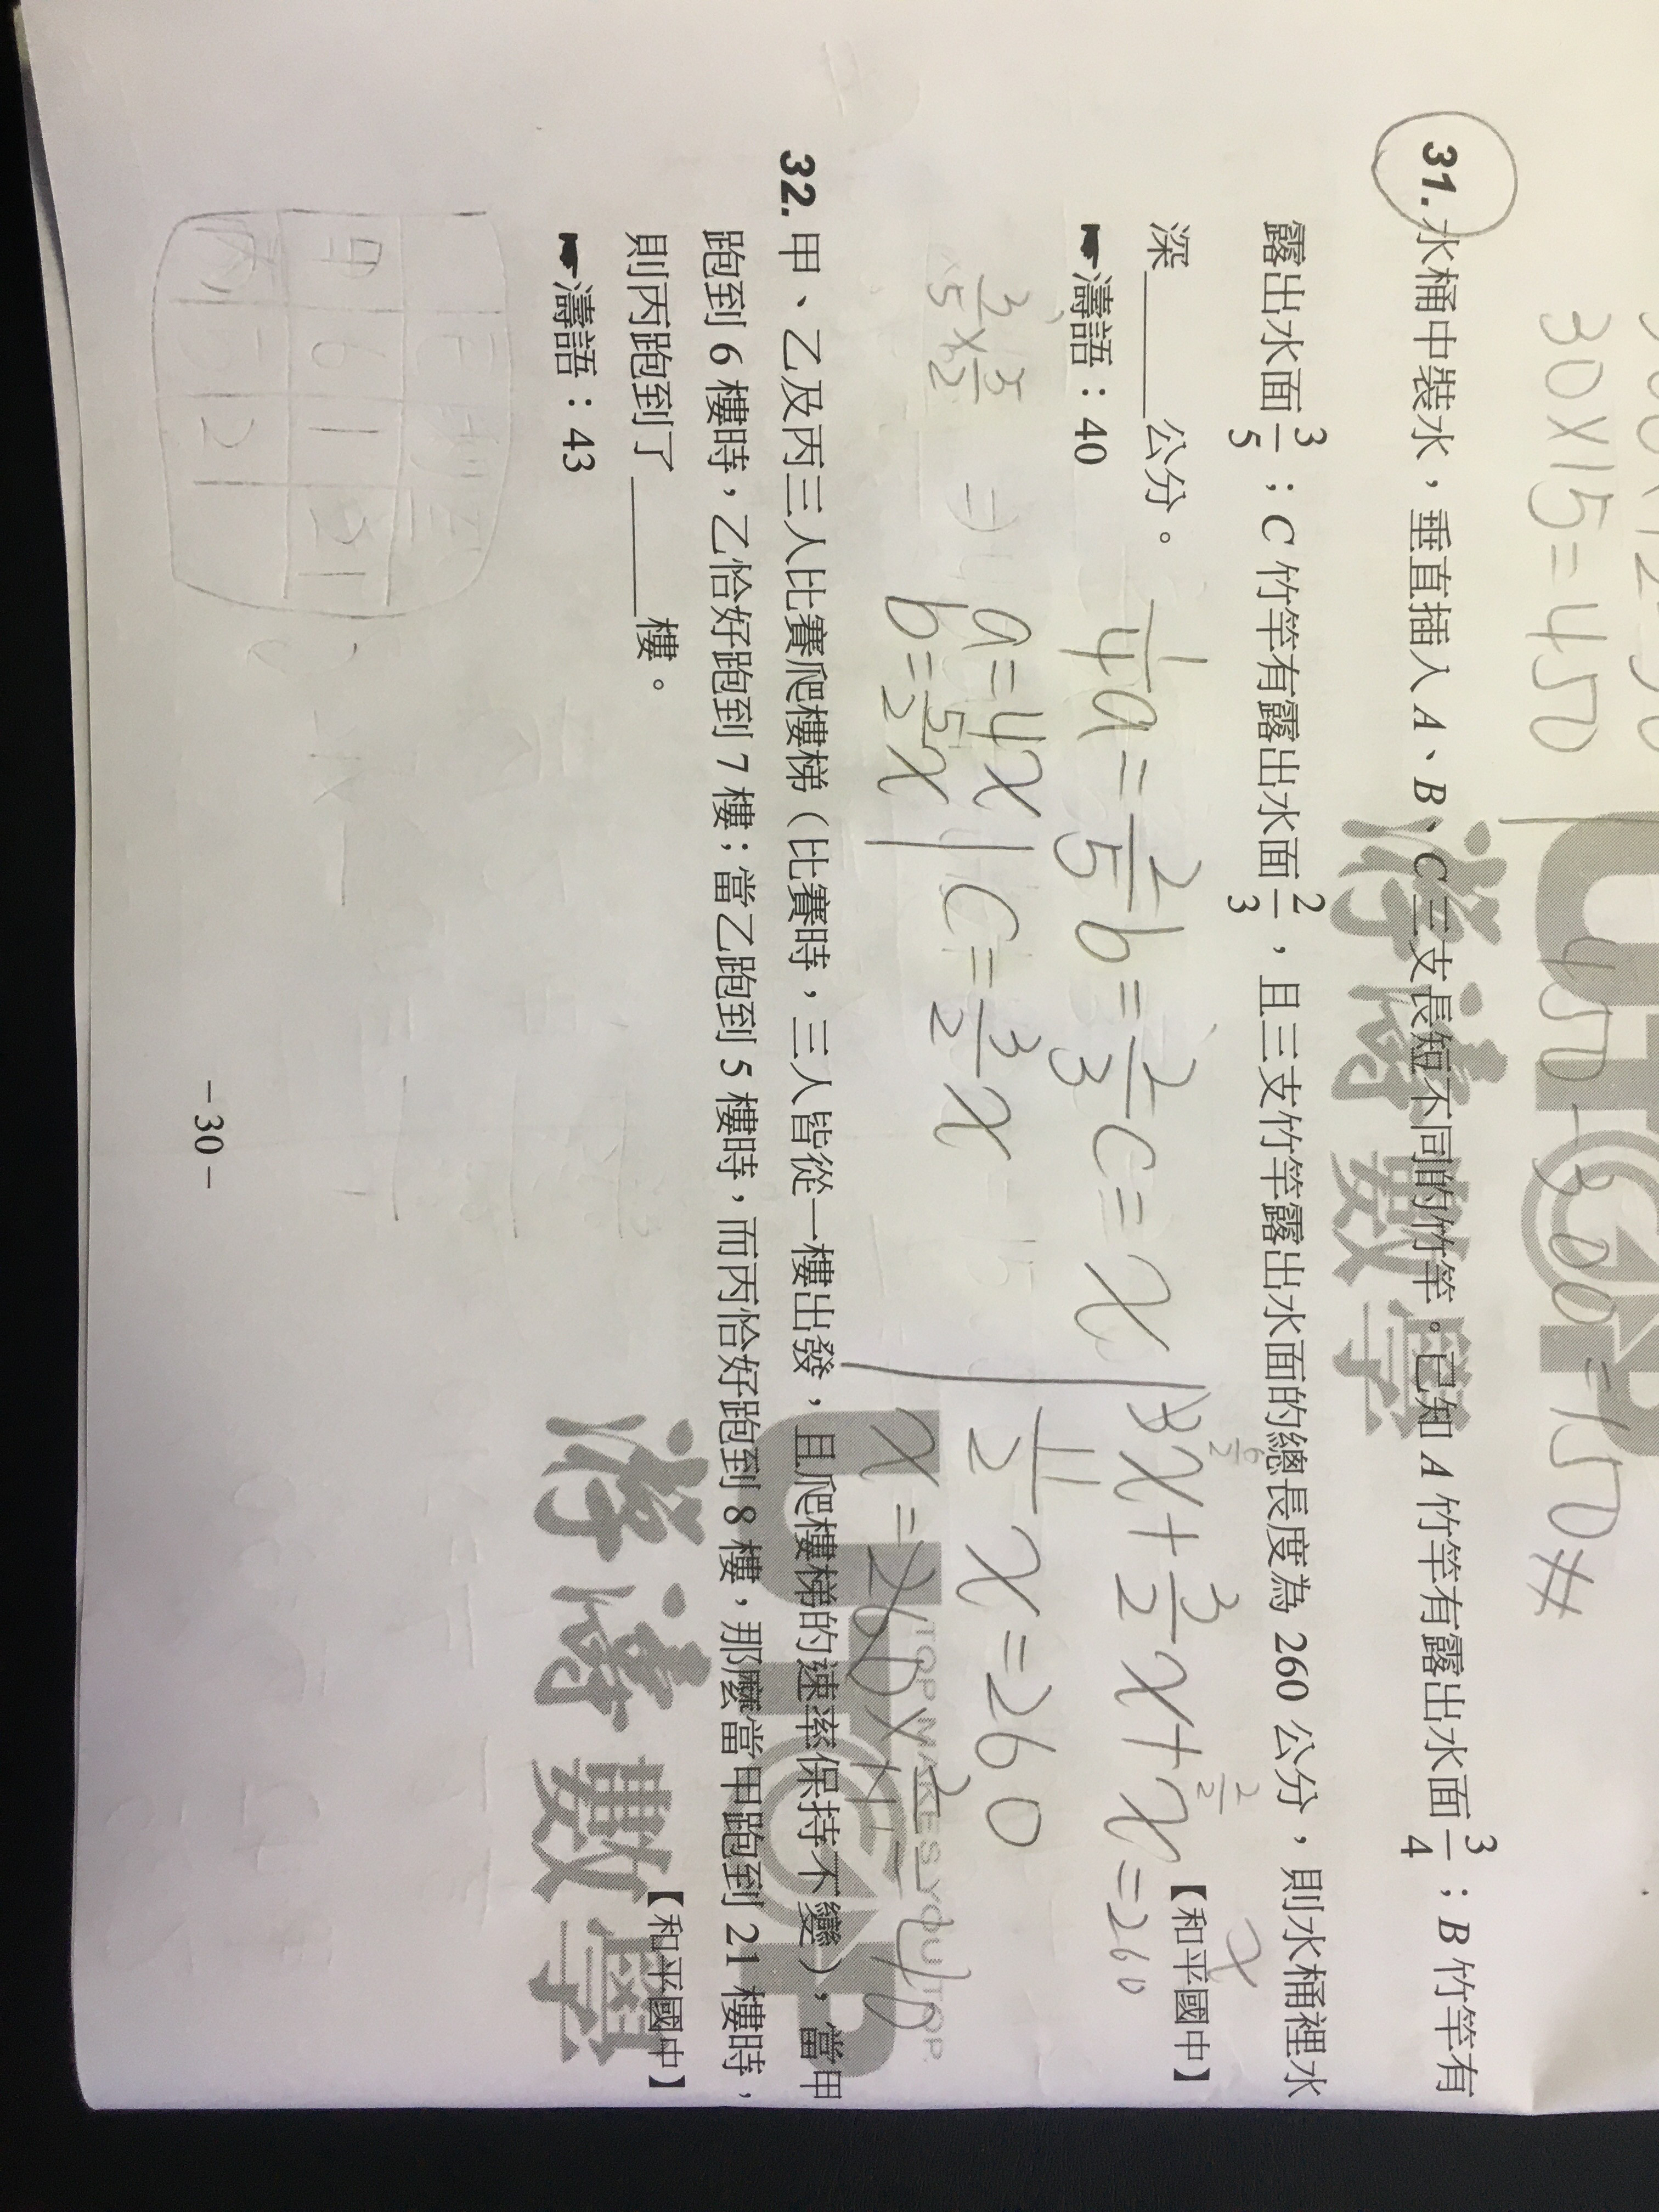 30×15=450
450-300=150#
UTOP
濤濤數學
31.水桶中裝水，垂直插入A、B、C三支長短不同的竹竿。已知A竹竿有露出水面3/4；B竹竿有
露出水面3/5；C竹竿有露出水面2/3，且三支竹竿露出水面的總長度為260公分，則水桶裡水
深______公分。
【和平國中】
☛濤語：40
1/4a=2/5b=2/3c=x
3x+3/2x+x=260
6/2
2/2
x
3/5×5/2
a=4x
b=5/2x
c=3/2x
11/2x=260
x=260×2/11
32.甲、乙及丙三人比賽爬樓梯（比賽時，三人皆從一樓出發，且爬樓梯的速率保持不變），當甲
跑到6樓時，乙恰好跑到7樓；當乙跑到5樓時，而丙恰好跑到8樓，那麼當甲跑到21樓時，
則丙跑到了______樓。
【和平國中】
☛濤語：43
UTOP
TOP MAKES YOU TOP.
數學
甲 6 21
-30-